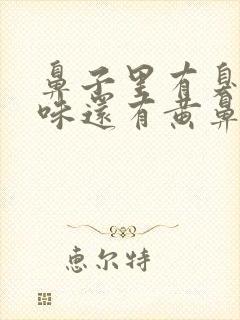 鼻子里有臭
味还有黄鼻
惠尔特